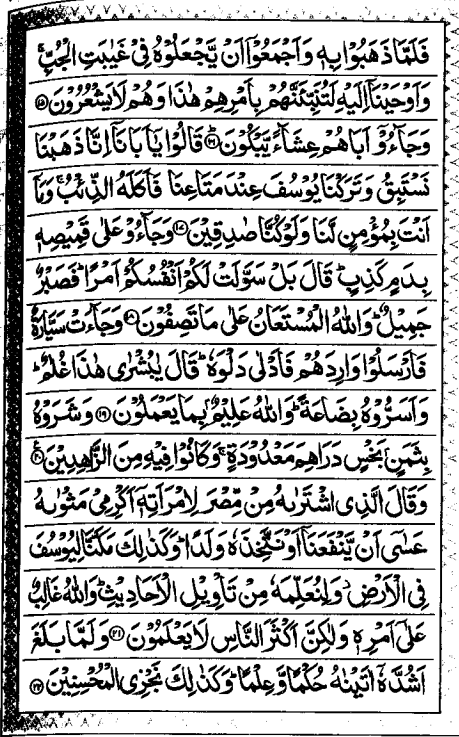 فَلَمَّا ذَهَبُوْا بِهٖ وَاَجْمَعُوْۤا اَنْ يَّجْعَلُوْهُ فِيْ غَيٰبَتِ الْجُبِّ ۚ
وَاَوْحَيْنَاۤ اِلَيْهِ لَتُنَبِّئَنَّهُمْ بِاَمْرِهِمْ هٰذَا وَهُمْ لَا يَشْعُرُوْنَ ۝۱۵
وَجَآءُوْۤ اَبَاهُمْ عِشَآءً يَّبْكُوْنَ ۝۱۶ؕ قَالُوْا يٰۤاَبَانَاۤ اِنَّا ذَهَبْنَا
نَسْتَبِقُ وَتَرَكْنَا يُوْسُفَ عِنْدَ مَتَاعِنَا فَاَكَلَهُ الذِّئْبُ ۚ وَمَاۤ
اَنْتَ بِمُؤْمِنٍ لَّنَا وَلَوْ كُنَّا صٰدِقِيْنَ ۝۱۷ وَجَآءُوْ عَلٰى قَمِيْصِهٖ
بِدَمٍ كَذِبٍ ؕ قَالَ بَلْ سَوَّلَتْ لَكُمْ اَنْفُسُكُمْ اَمْرًا ؕ فَصَبْرٌ
جَمِيْلٌ ؕ وَاللّٰهُ الْمُسْتَعَانُ عَلٰى مَا تَصِفُوْنَ ۝۱۸ وَجَآءَتْ سَيَّارَةٌ
فَاَرْسَلُوْا وَارِدَهُمْ فَاَدْلٰى دَلْوَهٗ ؕ قَالَ يٰبُشْرٰى هٰذَا غُلٰمٌ ؕ
وَاَسَرُّوْهُ بِضَاعَةً ؕ وَاللّٰهُ عَلِيْمٌۢ بِمَا يَعْمَلُوْنَ ۝۱۹ وَشَرَوْهُ
بِثَمَنٍۢ بَخْسٍ دَرَاهِمَ مَعْدُوْدَةٍ ۚ وَكَانُوْا فِيْهِ مِنَ الزَّاهِدِيْنَ ۝۲۰
وَقَالَ الَّذِى اشْتَرٰىهُ مِنْ مِّصْرَ لِامْرَاَتِهٖۤ اَكْرِمِيْ مَثْوٰىهُ
عَسٰۤى اَنْ يَّنْفَعَنَاۤ اَوْ نَتَّخِذَهٗ وَلَدًا ؕ وَكَذٰلِكَ مَكَّنَّا لِيُوْسُفَ
فِى الْاَرْضِ ۫ وَلِنُعَلِّمَهٗ مِنْ تَاْوِيْلِ الْاَحَادِيْثِ ؕ وَاللّٰهُ غَالِبٌ
عَلٰۤى اَمْرِهٖ وَلٰكِنَّ اَكْثَرَ النَّاسِ لَا يَعْلَمُوْنَ ۝۲۱ وَلَمَّا بَلَغَ
اَشُدَّهٗۤ اٰتَيْنٰهُ حُكْمًا وَّعِلْمًا ؕ وَكَذٰلِكَ نَجْزِى الْمُحْسِنِيْنَ ۝۲۲